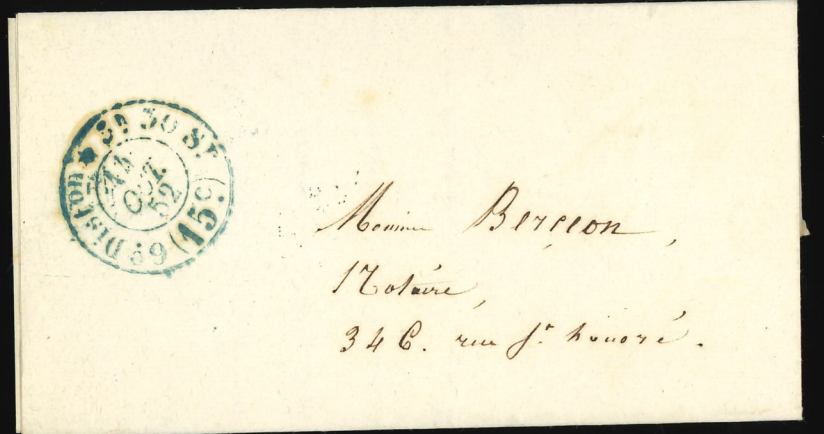 6e Diston * 3h 30 S. (15c)
11
OCT.
52
Monsieur Berceon,
Notaire,
346. rue St. honoré.